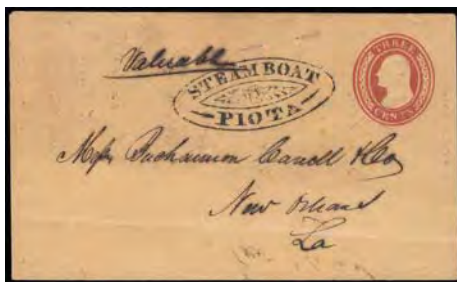 Valuable
STEAMBOAT
PIOTA
THREE
CENTS
Messrs Buchannon Carroll & Co
New Orleans
La